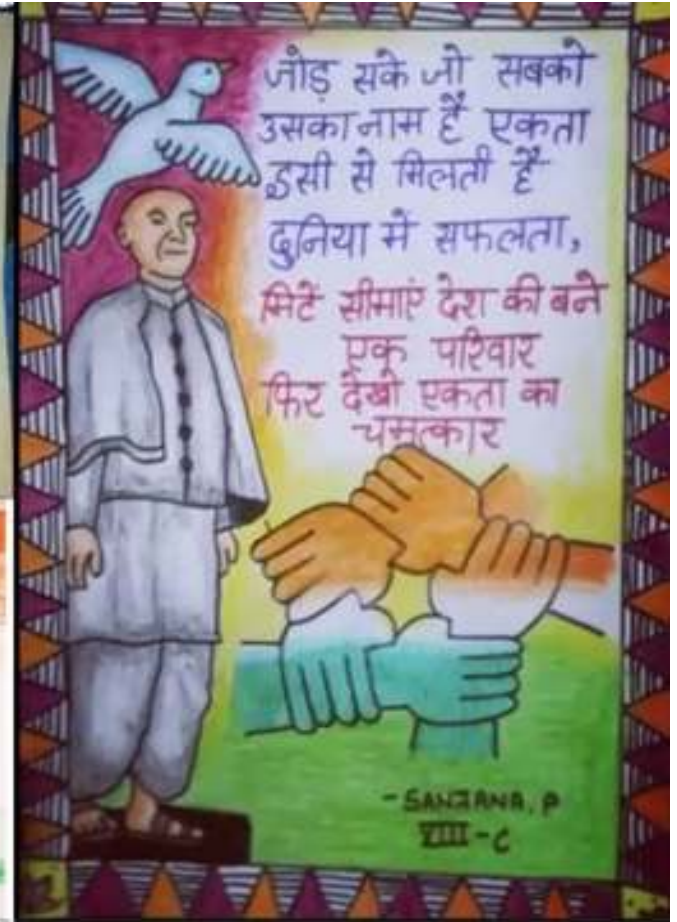 जोड़ सके जो सबको
उसका नाम है एकता
इसी से मिलती है
दुनिया में सफलता,
मिटें सीमाएं देश की बने
एक परिवार
फिर देखो एकता का
चमत्कार
-SANJANA.P
VIII-C